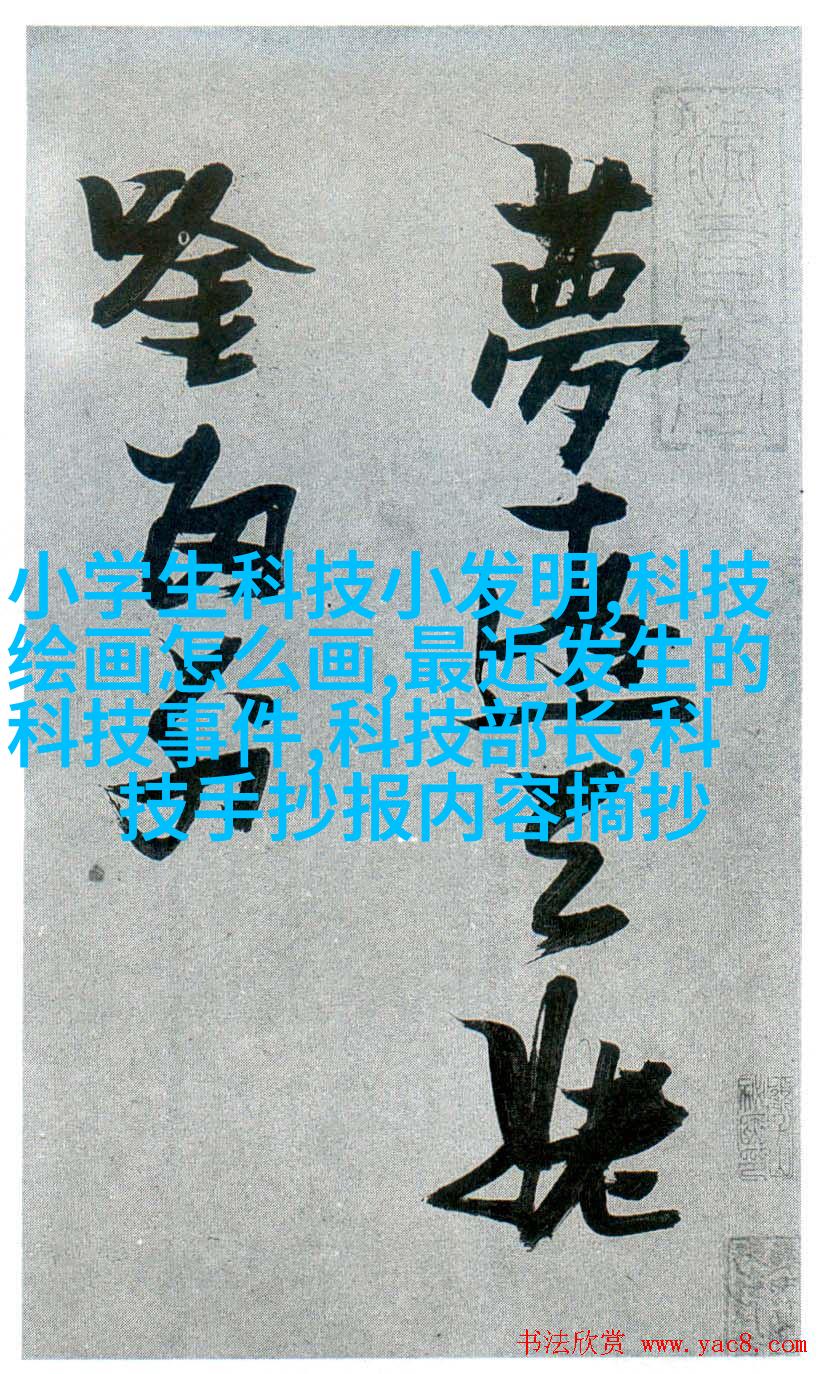 夢遊天姥
唫留別
小学生科技小发明,科技
绘画怎么画,最近发生的
科技事件,科技部长,科
技手抄报内容摘抄
书法欣赏 www.yac8.com